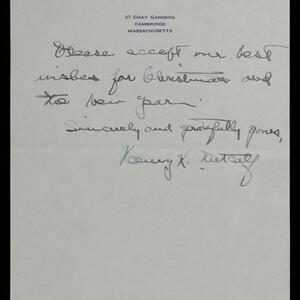 27 GRAY GARDENS
CAMBRIDGE
MASSACHUSETTS
Please accept my best
wishes for Christmas and
the new year.
Sincerely and gratefully yours,
Keyes D. Metcalf